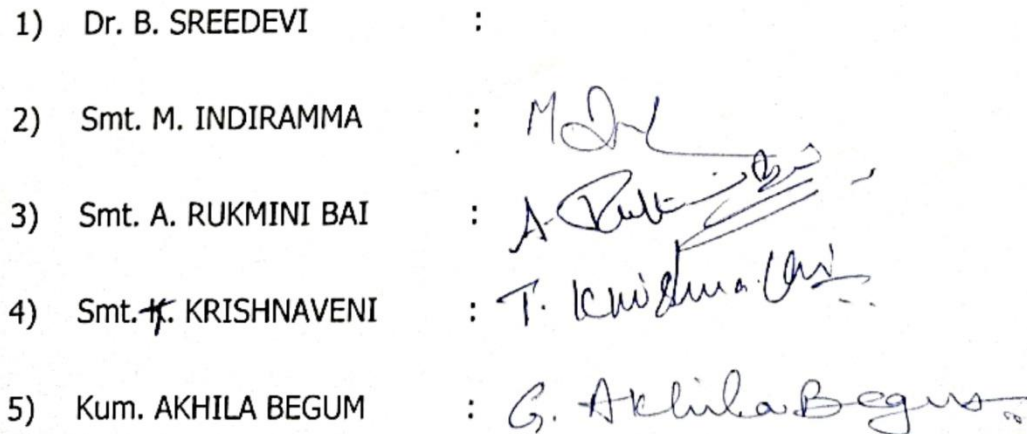 1) Dr. B. SREEDEVI :
2) Smt. M. INDIRAMMA : M
3) Smt. A. RUKMINI BAI : A. Rukmini Bai
4) Smt. T. KRISHNAVENI : T. Krishnaveni
5) Kum. AKHILA BEGUM : G. Akhila Begum